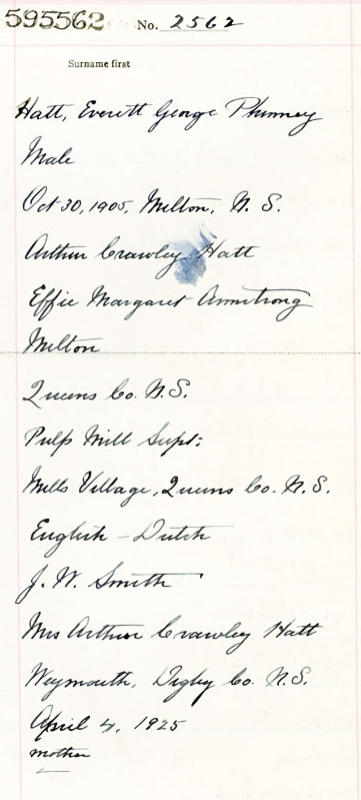 595562 No. 2562
Surname first
Hatt, Everett George Phinney
Male
Oct 30, 1905, Milton, N. S.
Arthur Crawley Hatt
Effie Margaret Armstrong
Milton
Queens Co. N.S.
Pulp Mill Supt:
Mills Village, Queens Co. N.S.
English - Dutch
J. W. Smith
Mrs Arthur Crawley Hatt
Weymouth, Digby Co. N.S.
April 4, 1925
mother